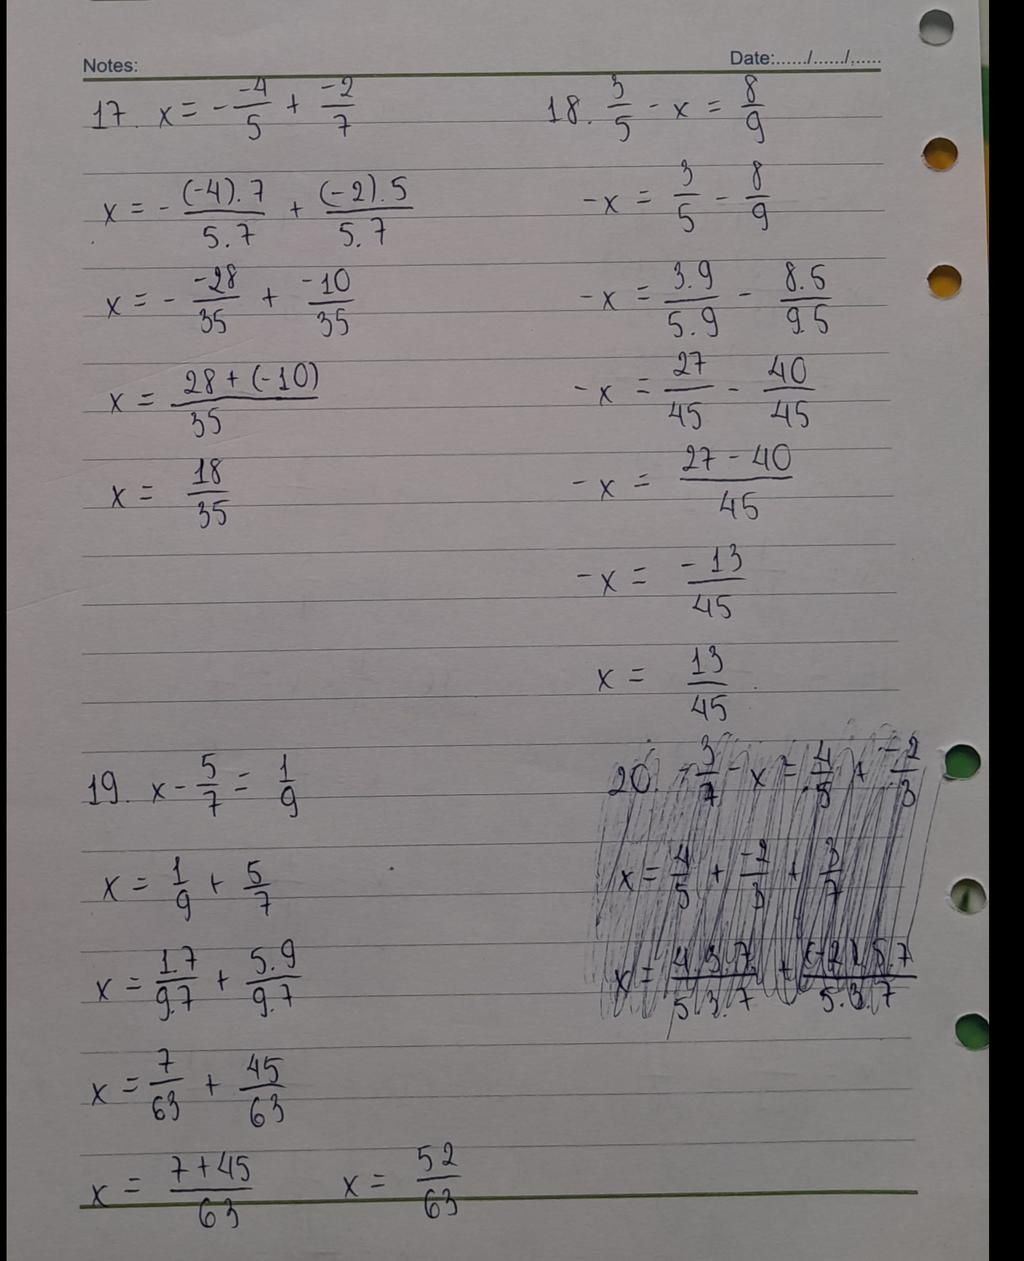 Notes:
Date:....../....../......
17. x = - -4/5 + -2/7
x = - (-4).7/5.7 + (-2).5/5.7
x = - -28/35 + -10/35
x = 28+(-10)/35
x = 18/35
18. 3/5 - x = 8/9
-x = 3/5 - 8/9
-x = 3.9/5.9 - 8.5/9.5
-x = 27/45 - 40/45
-x = 27-40/45
-x = -13/45
x = 13/45
19. x - 5/7 = 1/9
x = 1/9 + 5/7
x = 1.7/9.7 + 5.9/9.7
x = 7/63 + 45/63
x = 7+45/63   x = 52/63
20. -3/7 - x = 4/5 + -2/3
x = 4/5 + -2/3 + 3/7
x = 4.3.7/5.3.7